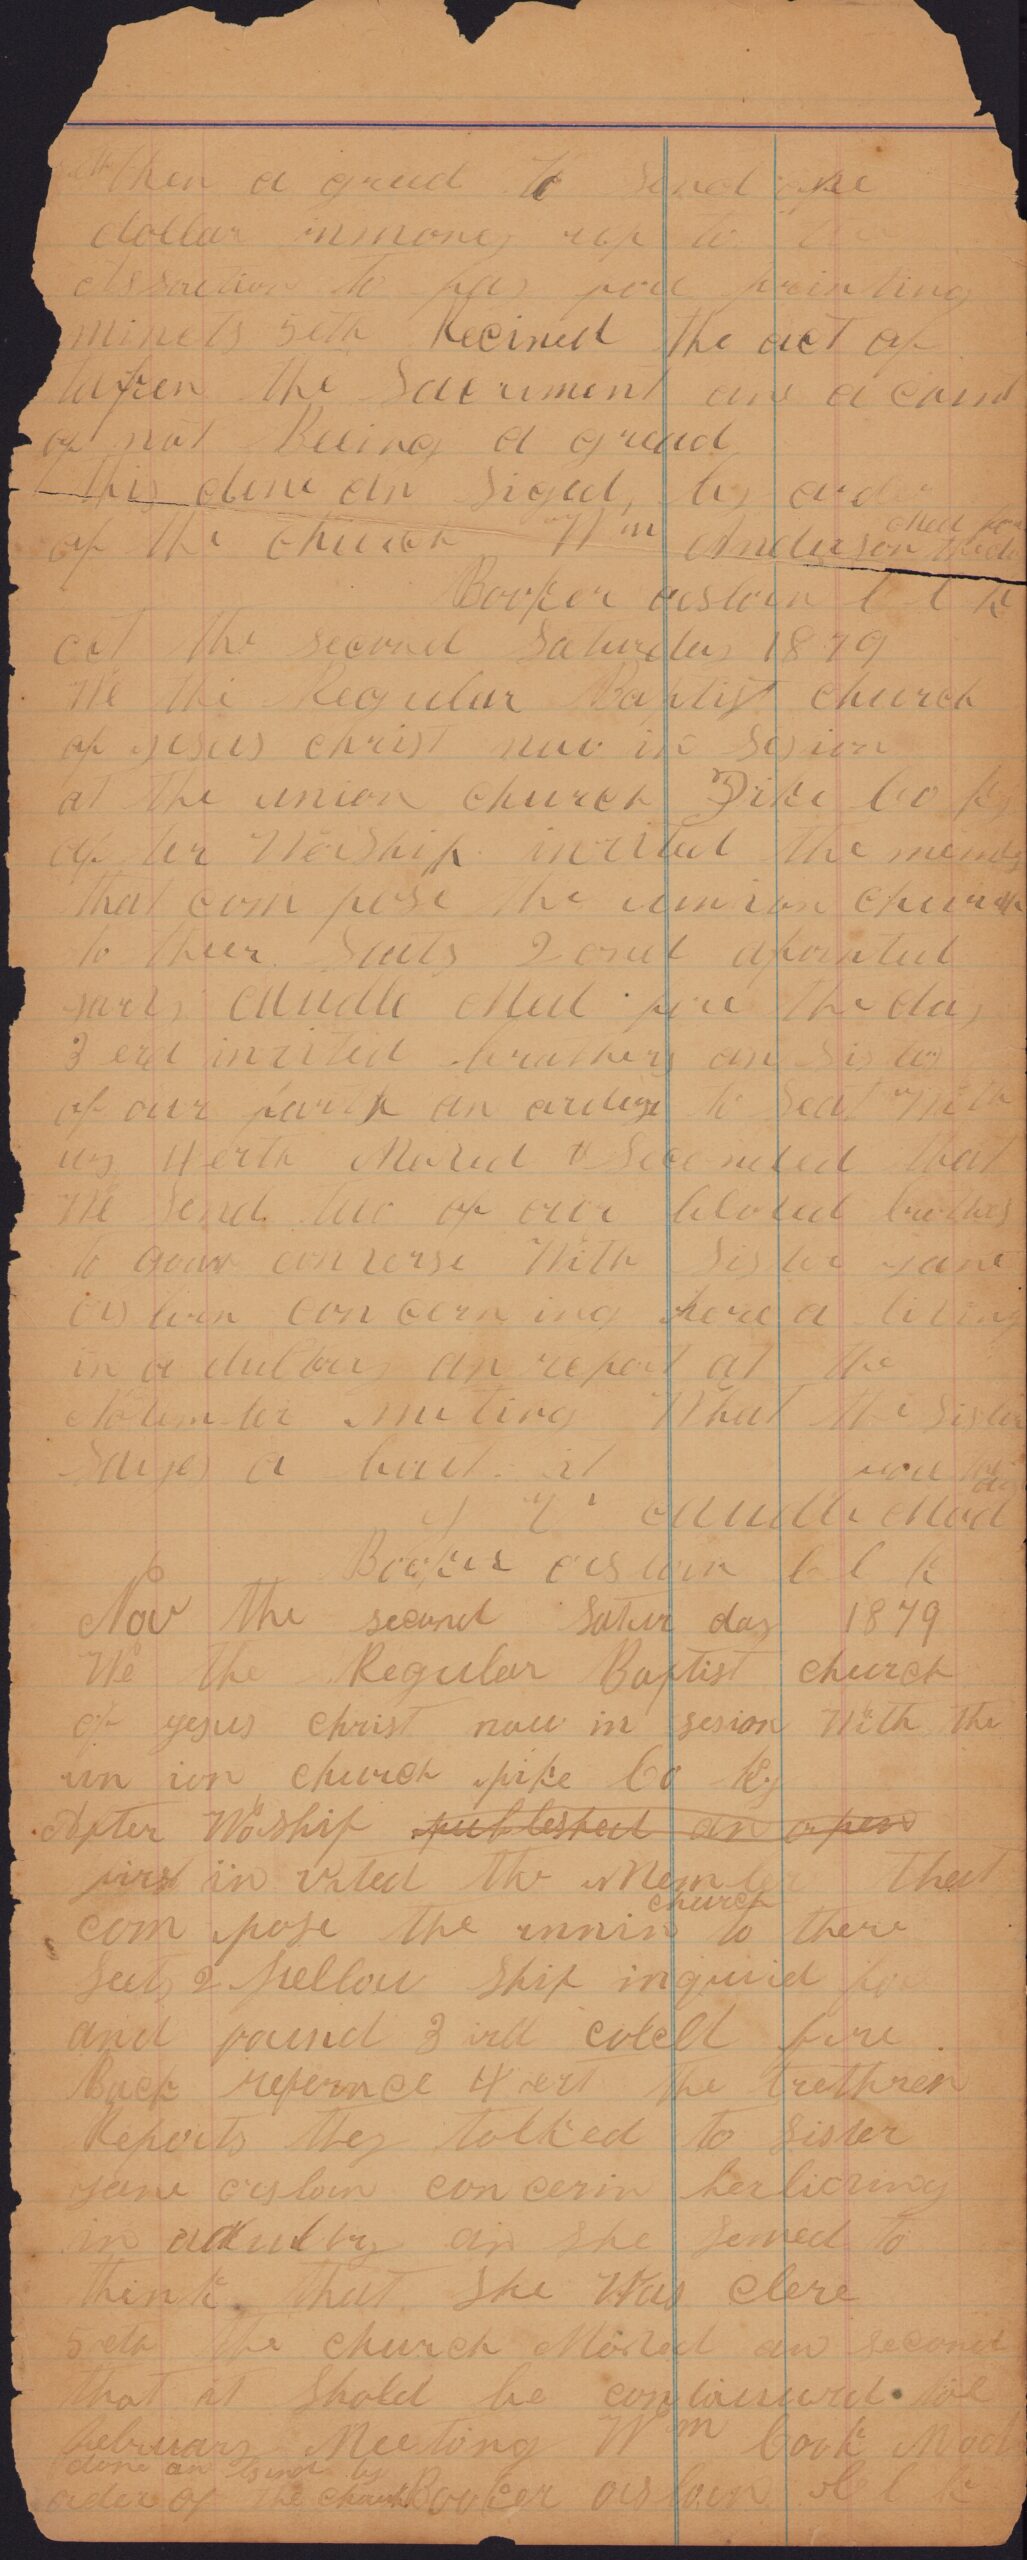 then a gread to send one
dollar in money up to the
assoation to pay for printing
minets 5eth Recived the act of
taken the Sacrument on a count
of not Beeing a gread
this done an Siged by order
of the church Wm Anderson
Booker osborn C l k
oct the second Saturday 1879
We the Regular Baptist church
of jesus christ now in sesion
at the union church Pike Co Ky
after Worship invited the
that com pose the uunion church
to their Seats 2ond apointed
Mudle Mod for the day
3 erd invited brothers an Sisters
of our faith an order to Seat With
us 4 erth Moved & Seconded that
We Send two of our beloved brothers
to go converse With Sister jane
osborn concern ing here a living
in a dultry an report at the
November meeting What the sister
Says a bout it
Mudle Mod
Booker osborn C l k
Nov the second Satur day 1879
We the Regular Baptist church
of yesus christ now in sesion With the
un ion church pike Co Ky
After Worship published an open
first in vited the Mem that
church
com pose the unnin to there
Seets 2 fellow Ship inquired for
and found 3 erd coleld fore
Back refernce 4 ert the brethren
Reports they talked to Sister
jane osborn concerin her living
in adultry an she semed to
think that She Was clere
5eth the church Moved an second
that it Shold be contanured till
february Meeting Wm Cook Mod
done an by
order of the church Booker osborn C l k